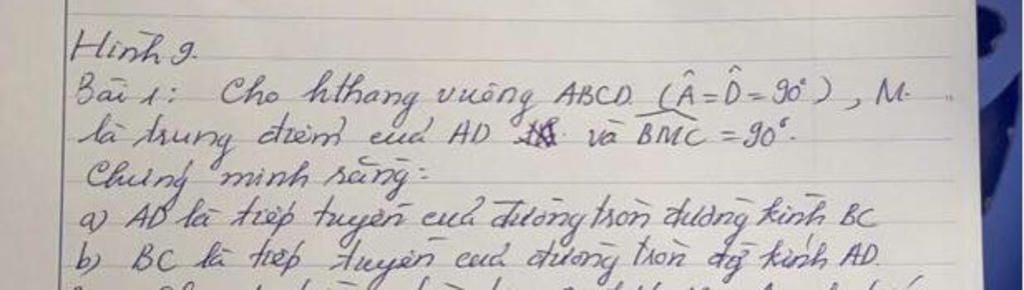 Hình 9.
Bài 1: Cho hthang vuông ABCD (Â = D̂ = 90°), M
là trung điểm của AD và BMC = 90°.
Chứng minh rằng:
a) AD là tiếp tuyến của đường tròn đường kính BC
b) BC là tiếp tuyến của đường tròn đg kính AD.